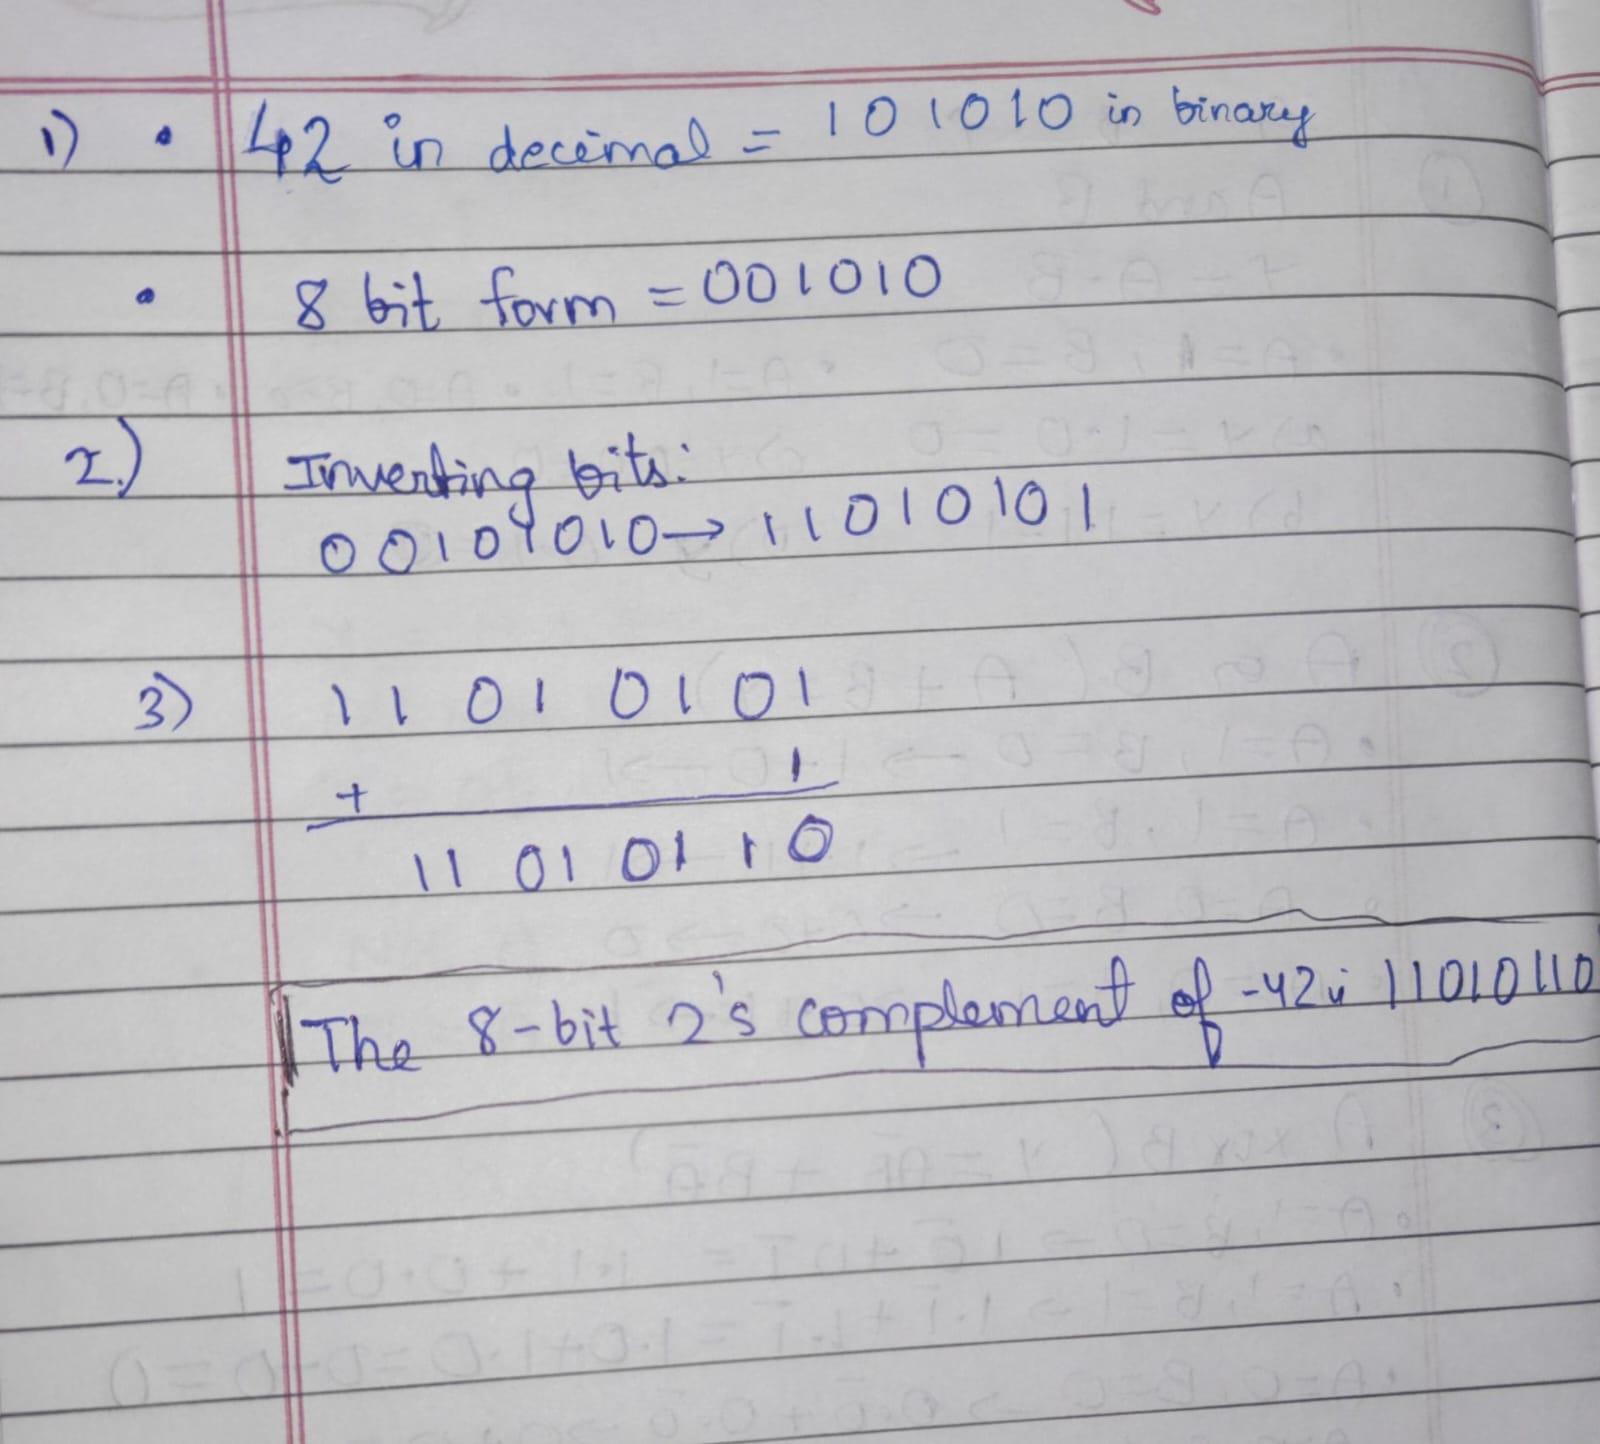 1) • 42 in decimal = 101010 in binary
• 8 bit form = 001010
2.) Inverting bits:
00101010 → 11010101
3) 11010101
+ 1
11010110
The 8-bit 2's complement of -42 is 11010110